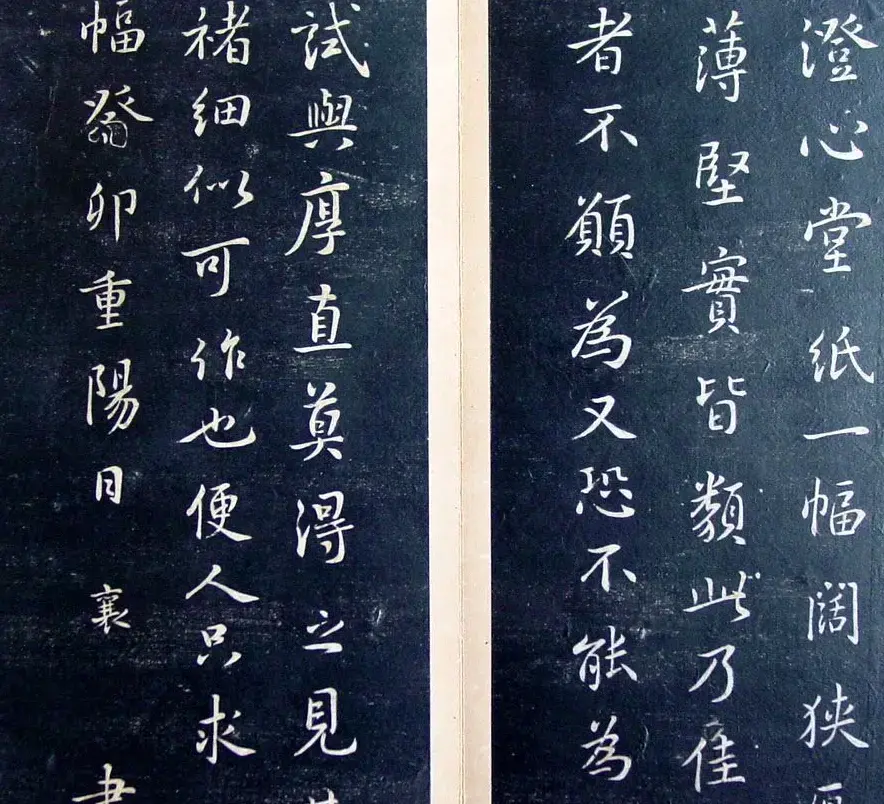 澄心堂紙一幅闊狹
薄堅實皆類此乃佳
者不願為又恐不能為
試與厚直莫得之見
褚細似可作也便人只求
幅癸卯重陽日 襄 書